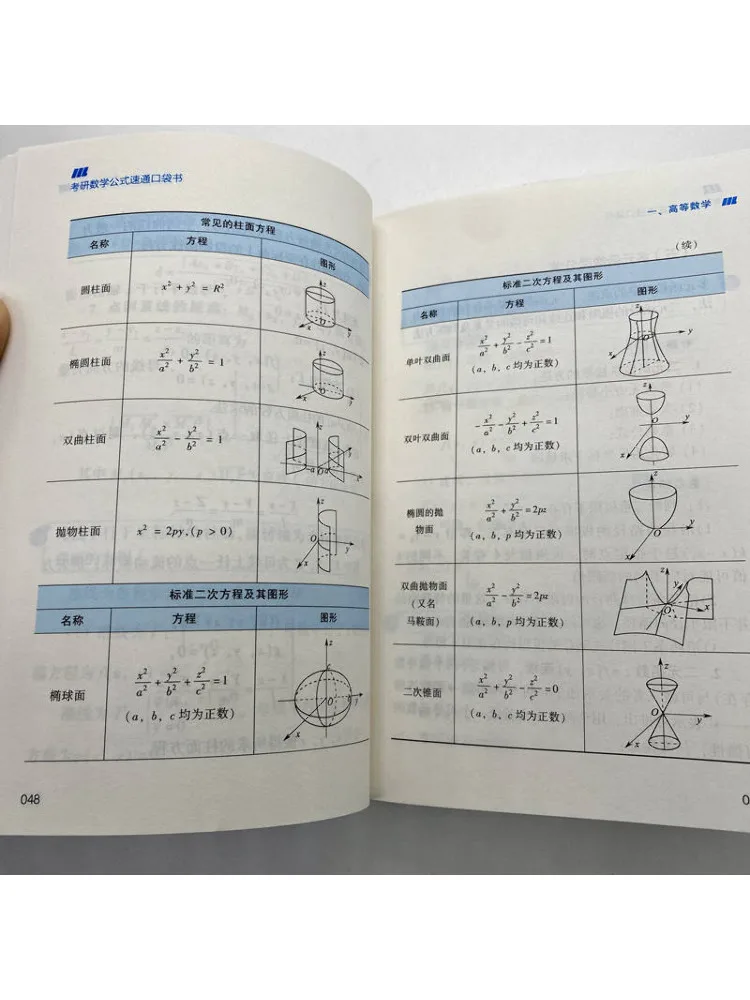 考研数学公式速通口袋书
常见的柱面方程
名称 方程 图形
圆柱面 x² + y² = R²
z
O
x y
椭圆柱面 x²/a² + y²/b² = 1
z
O
x y
双曲柱面 x²/a² - y²/b² = 1
z
x y
抛物柱面 x² = 2py,(p > 0)
z
O
x y
标准二次方程及其图形
名称 方程 图形
椭球面 x²/a² + y²/b² + z²/c² = 1
(a, b, c 均为正数)
z
c
O
x y
048
一、高等数学
(续)
标准二次方程及其图形
名称 方程 图形
单叶双曲面 x²/a² + y²/b² - z²/c² = 1
(a, b, c 均为正数)
z
O
x y
双叶双曲面 -x²/a² - y²/b² + z²/c² = 1
(a, b, c 均为正数)
z
O
x y
椭圆的抛
物面 x²/a² + y²/b² = 2pz
(a, b, p 均为正数)
z
O
x y
双曲抛物面
(又名
马鞍面) x²/a² - y²/b² = 2pz
(a, b, p 均为正数)
z
y
O
x
二次锥面 x²/a² + y²/b² - z²/c² = 0
(a, b, c 均为正数)
z
O
x y